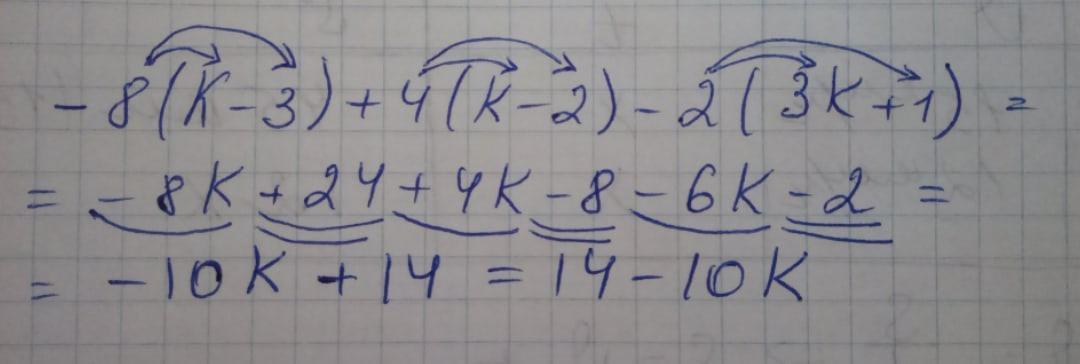 -8(K-3)+4(K-2)-2(3K+1)=
=-8K+24+4K-8-6K-2=
=-10K+14=14-10K